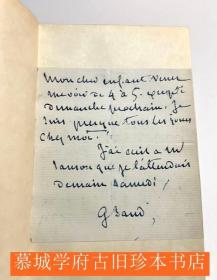 Mon cher enfant venez
me voir de 4 à 5. excepté
dimanche prochain. Je
suis presque tous les jours
chez moi.
J'ai écrit à M
Sanson que je l'attendais
demain samedi
G Sand
慕城学府古旧珍本书店